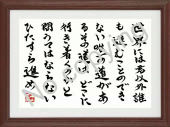 世界には君以外誰
も歩むことのでき
ない唯一の道があ
るその道はどこに
行き着くのかと
問うてはならない
ひたすら進め